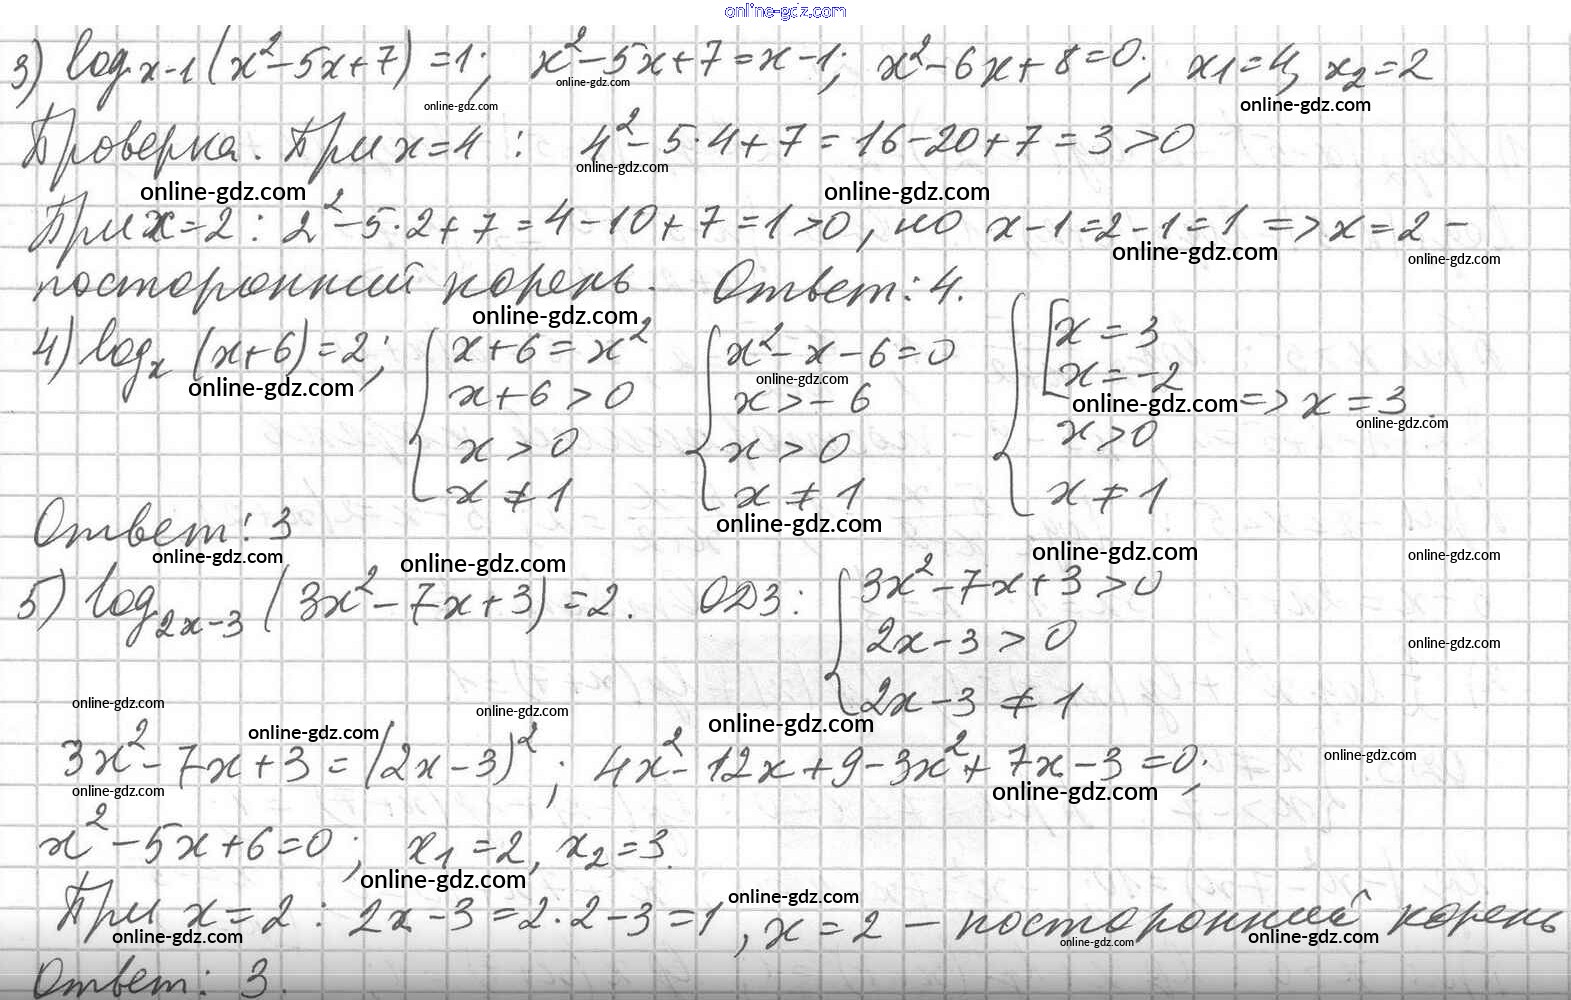 online-gdz.com
3) log x-1 (x²-5x+7) = 1; x²-5x+7 = x-1; x²-6x+8=0; x₁=4, x₂=2
online-gdz.com
online-gdz.com
online-gdz.com
Проверка. При x=4 : 4²-5·4+7 = 16-20+7 = 3 >0
online-gdz.com
online-gdz.com
online-gdz.com
При x=2 : 2²-5·2+7 = 4-10+7 = 1>0, но x-1=2-1=1 => x=2 -
online-gdz.com
online-gdz.com
посторонний корень. Ответ: 4.
online-gdz.com
4) logₓ (x+6) = 2; { x+6 = x² { x²-x-6=0 { [ x = 3
x+6 > 0 x>-6 x = -2
online-gdz.com
online-gdz.com
online-gdz.com
=> x = 3.
online-gdz.com
x > 0 x > 0 x>0
x ≠ 1 x ≠ 1 x ≠ 1
online-gdz.com
Ответ: 3
online-gdz.com
online-gdz.com
online-gdz.com
online-gdz.com
5) log 2x-3 (3x²-7x+3) = 2. ОДЗ: { 3x²-7x+3 > 0
2x-3 > 0
online-gdz.com
2x-3 ≠ 1
online-gdz.com
online-gdz.com
online-gdz.com
online-gdz.com
3x²-7x+3 = (2x-3)²; 4x²-12x+9-3x²+7x-3=0;
online-gdz.com
online-gdz.com
online-gdz.com
x²-5x+6=0; x₁=2, x₂=3.
online-gdz.com
online-gdz.com
При x=2 : 2x-3=2·2-3=1, x=2 – посторонний корень
online-gdz.com
online-gdz.com
online-gdz.com
Ответ: 3.